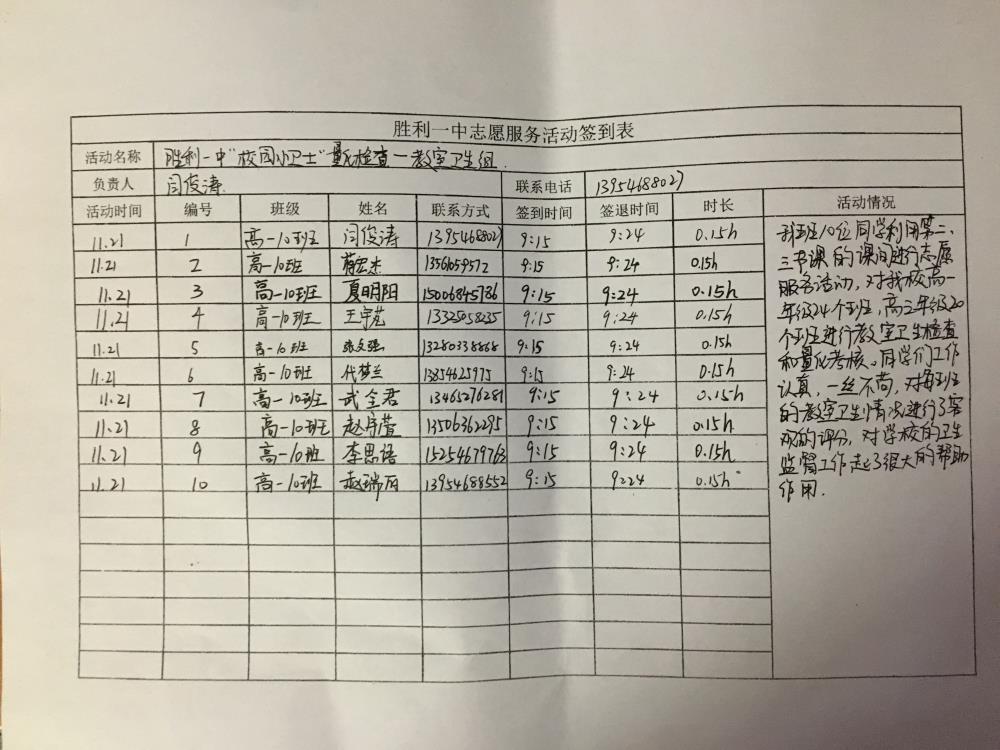 胜利一中志愿服务活动签到表
活动名称 胜利一中"校园小卫士"量化检查一教室卫生组.
负责人 闫俊涛 联系电话 13954688027
活动时间 编号 班级 姓名 联系方式 签到时间 签退时间 时长 活动情况
11.21 1 高一10班 闫俊涛 13954688027 9:15 9:24 0.15h
11.21 2 高一10班 蒋宏杰 13561059572 9:15 9:24 0.15h
11.21 3 高一10班 夏明阳 15006845786 9:15 9:24 0.15h
11.21 4 高一10班 王宇 13325058235 9:15 9:24 0.15h
11.21 5 高一10班 张文强 13280338868 9:15 9:24 0.15h
11.21 6 高一10班 代梦兰 13854625975 9:15 9:24 0.15h
11.21 7 高一10班 武全君 13465276281 9:15 9:24 0.15h
11.21 8 高一10班 赵宇萱 13506362295 9:15 9:24 0.15h
11.21 9 高一10班 李思语 15254679763 9:15 9:24 0.15h
11.21 10 高一10班 赵瑞 13954688552 9:15 9:24 0.15h
我班10位同学利用第二、
三节课的课间进行志愿
服务活动,对我校高一
年级24个班,高三年级20
个班进行教室卫生检查
和量化考核。同学们工作
认真,一丝不苟,对每班
的教室卫生情况进行了客
观的评分,对学校的卫生
监督工作起了很大的帮助
作用.